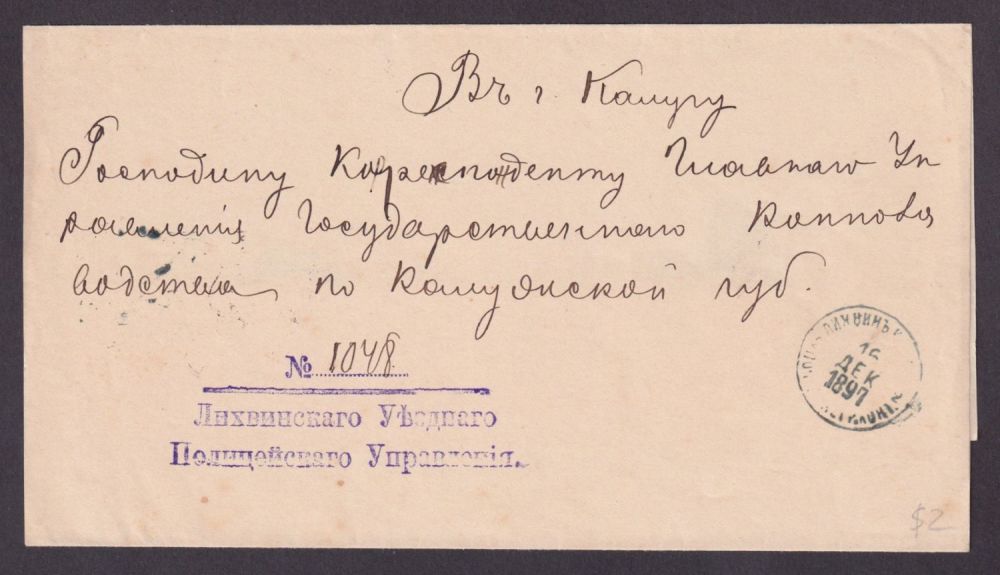 Въ г. Калугу
Господину Корреспонденту Главнаго Уп
равленія Государственнаго Коннова
водства по Калужской губ.
№ 1048
Лихвинскаго Уѣзднаго
Полицейскаго Управленія.
ЛИХВИНЪ
16
ДЕК
1897
$2